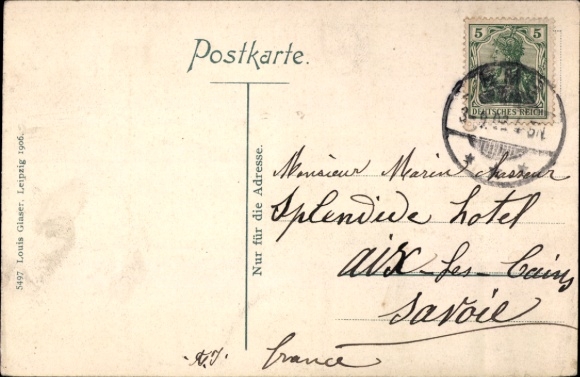 Postkarte.
5
5
DEUTSCHES REICH
Monsieur Marin
Splendide hotel
aix-les-Bains
Savoie
france
Nur für die Adresse.
5497 Louis Glaser, Leipzig 1906.